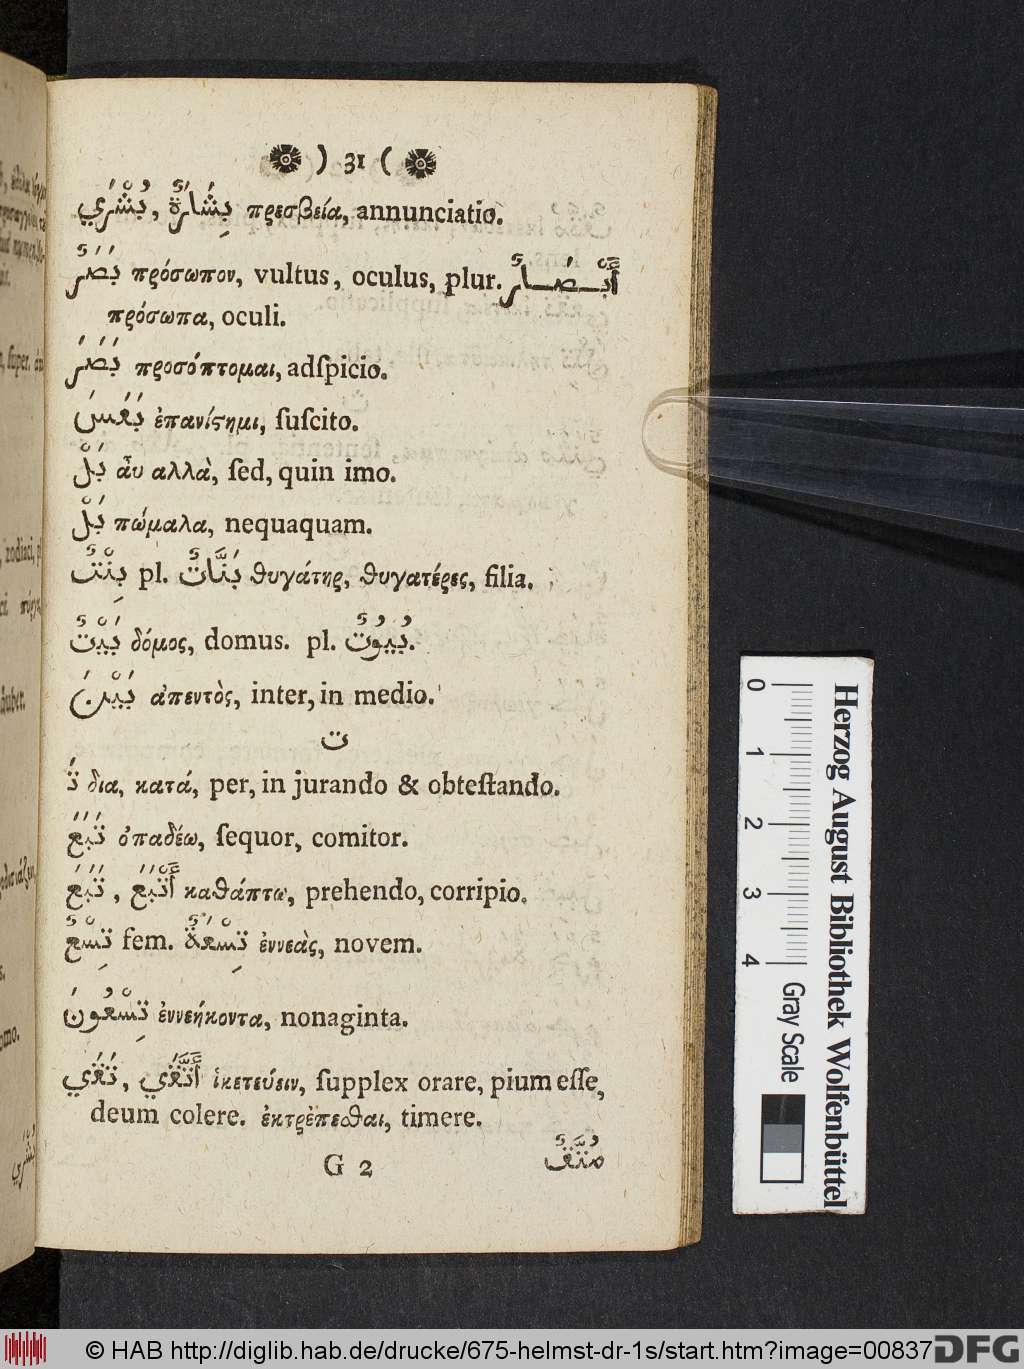 ) 31 (
بُشْرَي, بِشَارَةٌ πρεσβεία, annunciatio.
بَصَرٌ πρόσωπον, vultus, oculus, plur. أَبْصَارٌ
πρόσωπα, oculi.
بَصَرَ προσόπτομαι, adſpicio.
بَعَسَ ἐπανίϛημι, ſuſcito.
بَلْ ἂυ αλλὰ, ſed, quin imo.
بَلْ πώμαλα, nequaquam.
بِنْتٌ pl. بَنَّاتٌ θυγάτηρ, θυγατέρες, filia.
بَيْتٌ δόμος, domus. pl. بُيُوتٌ.
بَيْنَ ἀπεντὸς, inter, in medio.
ت
تَ δια, κατά, per, in jurando & obteſtando.
تَبَعَ ὀπαδέω, ſequor, comitor.
تَبَعَ, أَتْبَعَ καθάπτω, prehendo, corripio.
تِسْعٌ fem. تِسْعَةٌ ἐννεὰς, novem.
تِسْعُونَ ἐννεήκοντα, nonaginta.
تَقَي, أَتَّقَي ἱκετεύειν, ſupplex orare, pium eſſe,
deum colere. ἐκτρέπεσθαι, timere.
G 2 مُتَّقٌ
0 1 2 3 4
Gray Scale
Herzog August Bibliothek Wolfenbüttel
© HAB http://diglib.hab.de/drucke/675-helmst-dr-1s/start.htm?image=00837
DFG